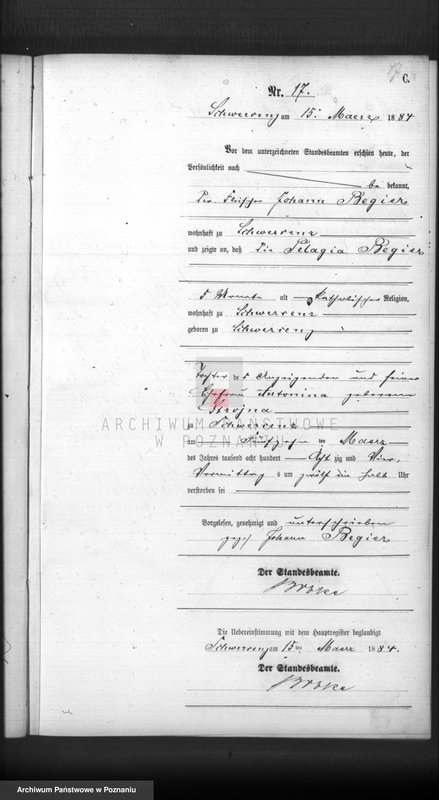 17 C.
Nr. 17.
Schwersenz am 15. Maerz 1884
Vor dem unterzeichneten Standesbeamten erschien heute, der
Persönlichkeit nach
be kannt,
der Fleischer Johann Begier
wohnhaft zu Schwersenz
und zeigte an, daß die Pelagia Begier
5 Monate alt katholischer Religion,
wohnhaft zu Schwersenz
geboren zu Schwersenz
Tochter des Anzeigenden und seiner
Ehefrau Antonina geborene
Strojna
zu Schwersenz
am fünfzehn ten Maerz
des Jahres tausend acht hundert acht zig und vier,
Vormittag s um zwölf ein halb Uhr
verstorben sei
Vorgelesen, genehmigt und unterschrieben
gez. Johann Begier
Der Standesbeamte.
Die Uebereinstimmung mit dem Hauptregister beglaubigt
Schwersenz am 15 ten Maerz 1884.
Der Standesbeamte.
ARCHIWUM PAŃSTWOWE
W POZNANIU
Archiwum Państwowe w Poznaniu